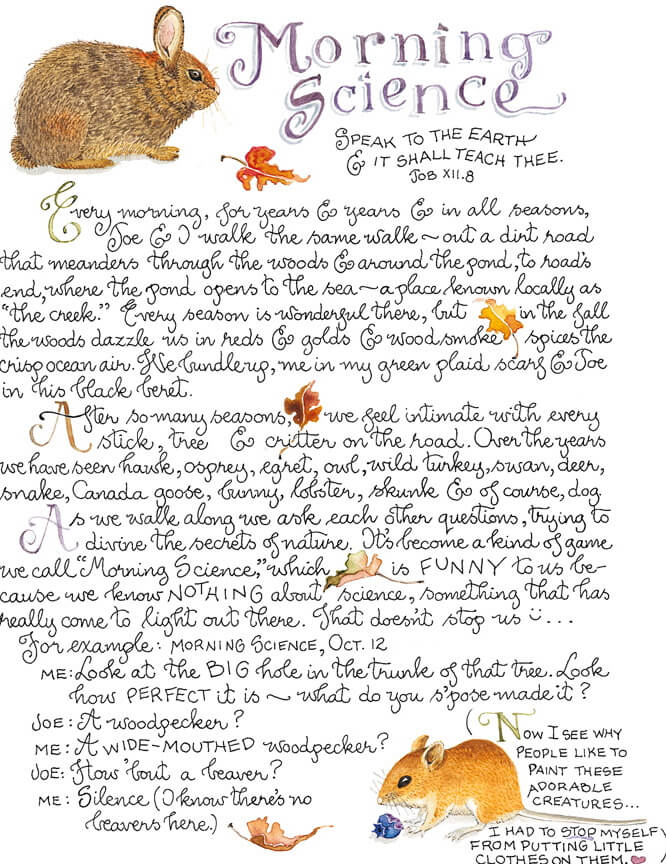 Morning
Science
SPEAK TO THE EARTH
& IT SHALL TEACH THEE.
JOB XII.8
Every morning, for years & years & in all seasons,
Joe & I walk the same walk ~ out a dirt road
that meanders through the woods & around the pond, to road's
end, where the pond opens to the sea ~ a place known locally as
"the creek." Every season is wonderful there, but in the fall
the woods dazzle us in reds & golds & woodsmoke spices the
crisp ocean air. We bundle up, me in my green plaid scarf & Joe
in his black beret.
After so many seasons, we feel intimate with every
stick, tree & critter on the road. Over the years
we have seen hawk, osprey, egret, owl, wild turkey, swan, deer,
snake, Canada goose, bunny, lobster, skunk & of course, dog.
As we walk along we ask each other questions, trying to
divine the secrets of nature. It's become a kind of game
we call "Morning Science," which is FUNNY to us be-
cause we know NOTHING about science, something that has
really come to light out there. That doesn't stop us ü...
For example: MORNING SCIENCE, OCT. 12
ME: Look at the BIG hole in the trunk of that tree. Look
how PERFECT it is ~ what do you s'pose made it?
JOE: A woodpecker?
ME: A WIDE-MOUTHED woodpecker?
JOE: How 'bout a beaver?
ME: Silence (I know there's no
beavers here.)
(NOW I SEE WHY
PEOPLE LIKE TO
PAINT THESE
ADORABLE
CREATURES...
I HAD TO STOP MYSELF
FROM PUTTING LITTLE
CLOTHES ON THEM. ♥